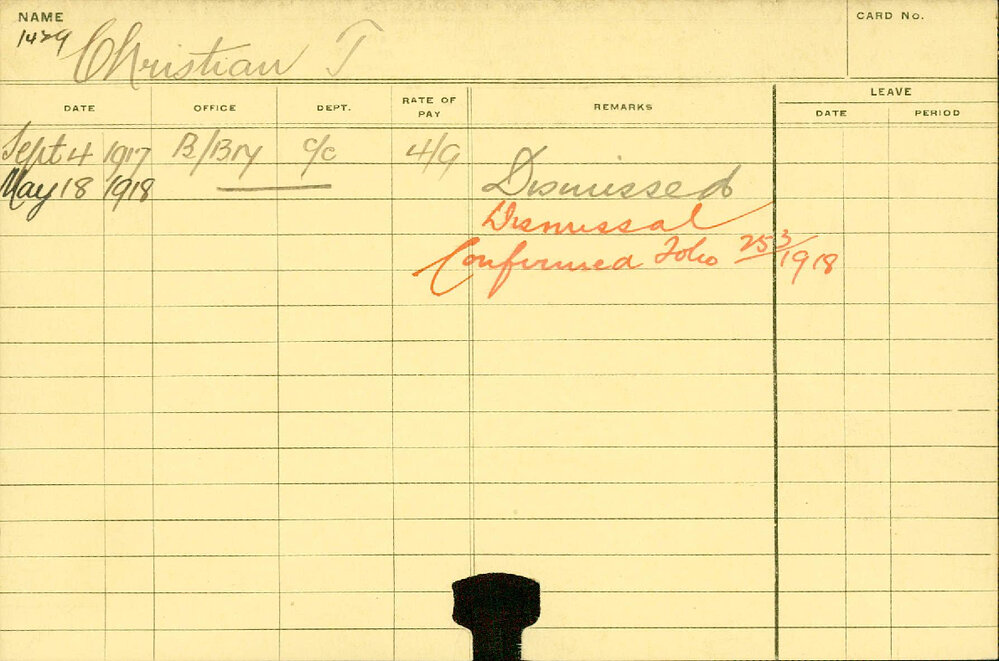 NAME
CARD No.
1429 Christian T
DATE OFFICE DEPT. RATE OF PAY REMARKS LEAVE
DATE PERIOD
Sept 4 1917 B/Bry c/c 4/9
May 18 1918 Dismissed
Dismissal
Confirmed Folio 253/1918